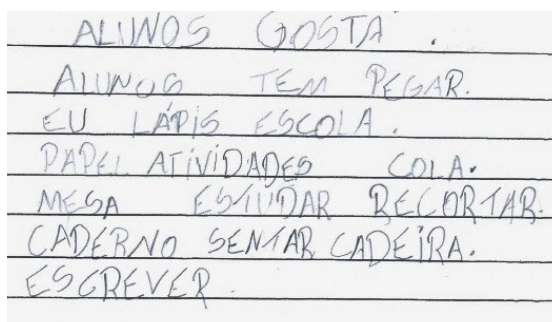 ALUNOS GOSTA .
ALUNOS TEM PEGAR.
EU LÁPIS ESCOLA.
PAPEL ATIVIDADES COLA.
MESA ESTUDAR RECORTAR.
CADERNO SENTAR CADEIRA.
ESCREVER.